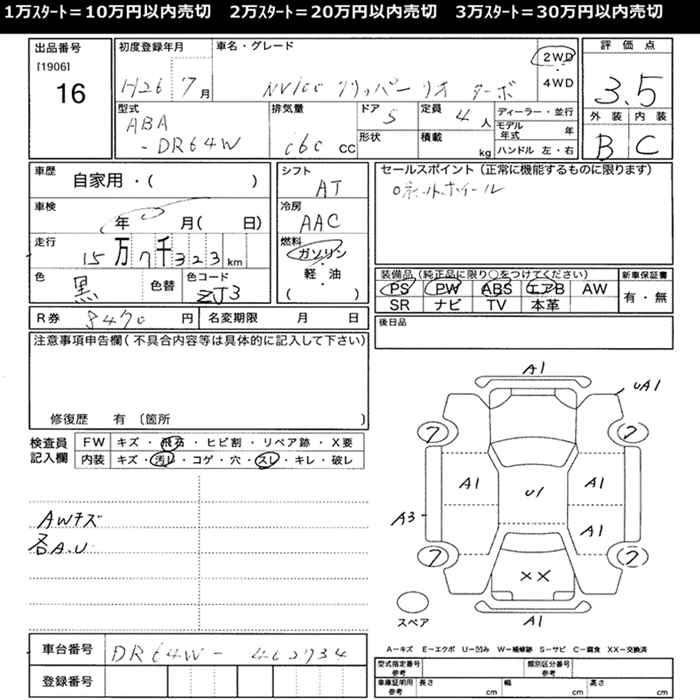 1万ｽﾀｰﾄ＝10万円以内売切　2万ｽﾀｰﾄ＝20万円以内売切　3万ｽﾀｰﾄ＝30万円以内売切
出品番号
[1906]
16
初度登録年月
H26 7月
車名・グレード
NV100 クリッパー リオ ターボ
2WD
4WD
評価点
3.5
外装 内装
B C
型式
ABA
-DR64W
排気量
660 cc
ドア 5
形状
定員 4人
積載 kg
ディーラー・並行
モデル年式 年
ハンドル 左・右
車歴 自家用・( )
車検 年 月( 日)
走行 15万7千323km
色 黒 色替
色コード ZJ3
シフト
AT
冷房
AAC
燃料
ガソリン
軽・油
( )
セールスポイント（正常に機能するものに限ります）
装備品（純正品に限り○をつけてください）
PS PW ABS エアB AW
SR ナビ TV 本革
新車保証書
有・無
R券 8470円 名変期限 月 日
後日品
注意事項申告欄（不具合内容等は具体的に記入して下さい）
修復歴 有 〔箇所 〕
検査員
記入欄
FW キズ・飛石・ヒビ割・リペア跡・X要
内装 キズ・汚レ・コゲ・穴・スレ・キレ・破レ
AWキズ
各A.U
A1
UA1
7 7
A1 U1 A1
A3
A1
7 7
XX
A1
スペア
A－キズ E－エクボ U－凹み W－補修跡 S－サビ C－腐食 XX－交換済
車台番号 DR64W - 402734
登録番号
型式指定番号 参考
類別区分番号 参考
車庫証明用 参考
長さ cm 幅 cm 高さ cm